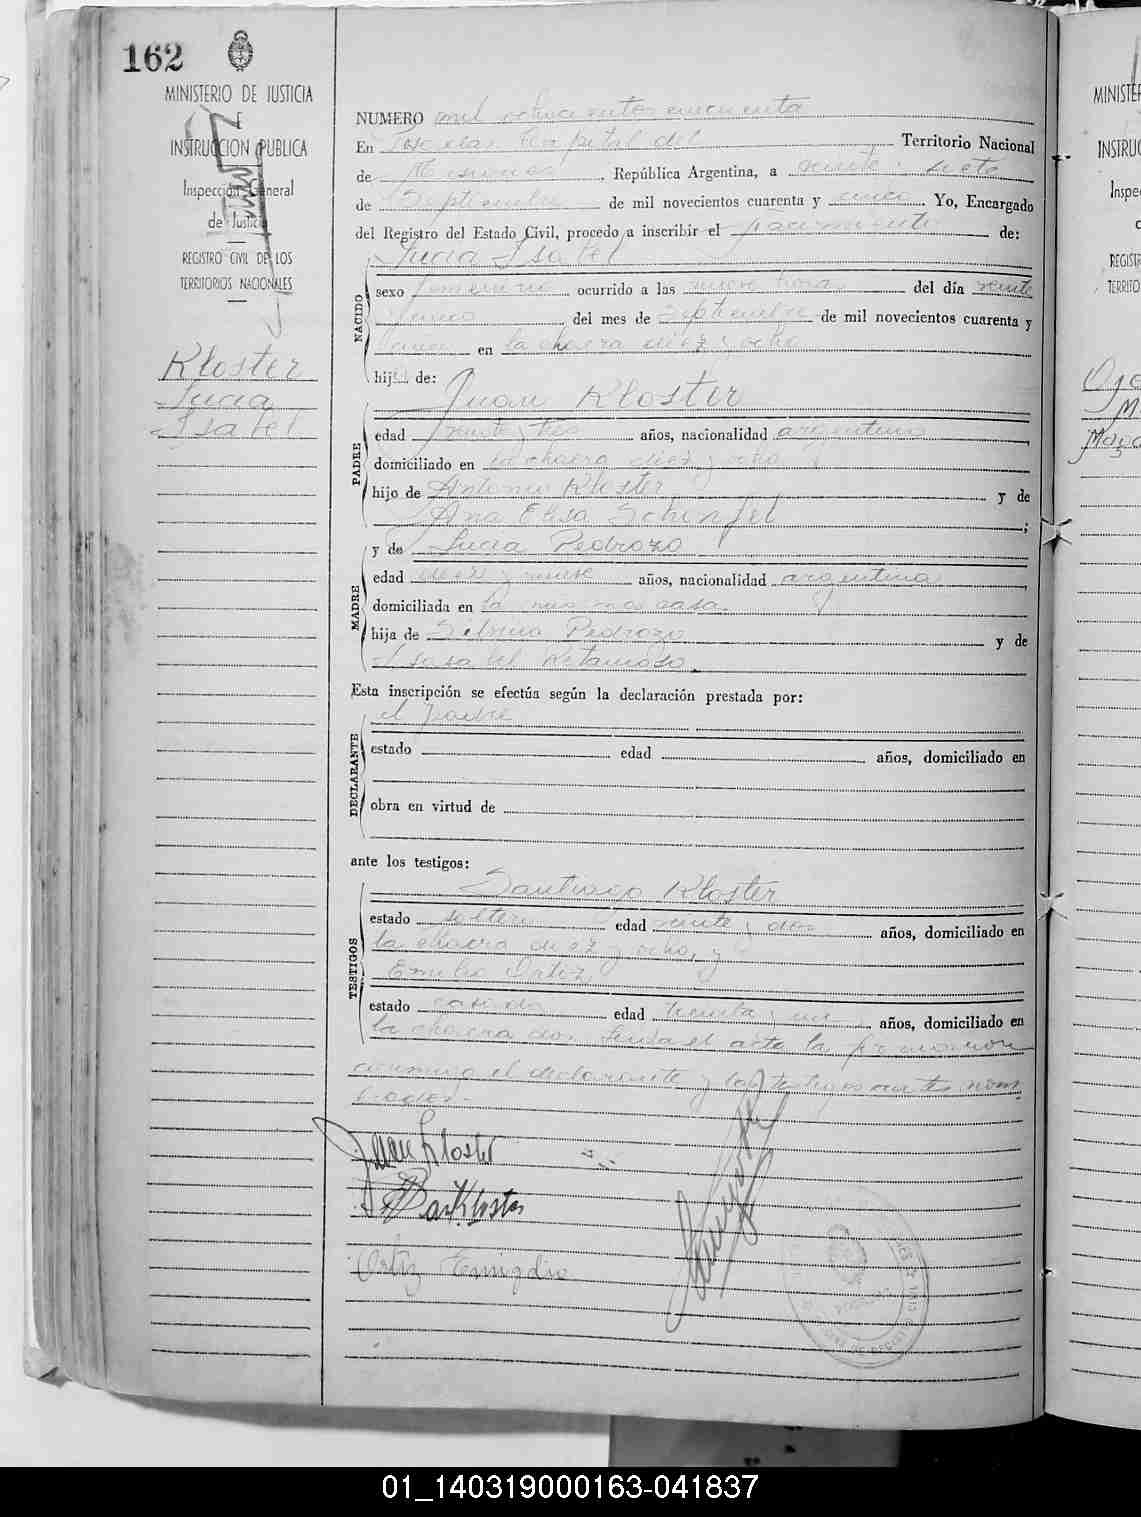 162
MINISTERIO DE JUSTICIA
E
INSTRUCCION PUBLICA
Inspección General
de Justicia
REGISTRO CIVIL DE LOS
TERRITORIOS NACIONALES
Kloster
Lucia
Isabel
NUMERO mil ochocientos cincuenta
En Posadas Capital del Territorio Nacional
de Misiones República Argentina, a veinte y siete
de Septiembre de mil novecientos cuarenta y cinco Yo, Encargado
del Registro del Estado Civil, procedo a inscribir el nacimiento de:
Lucia Isabel
NACIDO
sexo femenino ocurrido a las nueve horas del día veinte
y cinco del mes de Septiembre de mil novecientos cuarenta y
cinco en la chacra diez y ocho
hija de:
Juan Kloster
PADRE
edad veinte y tres años, nacionalidad argentino
domiciliado en la chacra diez y ocho
hijo de Antonio Kloster y de
Ana Elisa
y de Lucia Pedrozo
MADRE
edad diez y nueve años, nacionalidad argentina
domiciliada en la misma casa.
hija de Silvino Pedrozo y de
Esta inscripción se efectúa según la declaración prestada por:
el padre
DECLARANTE
estado edad años, domiciliado en
obra en virtud de
ante los testigos:
Santiago Kloster
TESTIGOS
estado soltero edad veinte y dos años, domiciliado en
la chacra diez y ocho, y
Ortiz
estado casado edad treinta y un años, domiciliado en
la chacra dos. Leida el acta la firmaron
conmigo el declarante y los testigos antes nom
brados.-
Juan Kloster
Kloster
Ortiz Emigdio
MINISTE
INSTRUC
Inspec
REGISTR
TERRITO
01_140319000163-041837